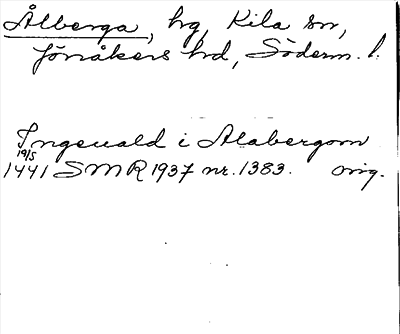 Ålberga, hg, Kila sn,
Jönåkers hd, Söderm. l.
Ingeuald i Alabergom
19/5
1441 SMR 1937 nr. 1383. orig.